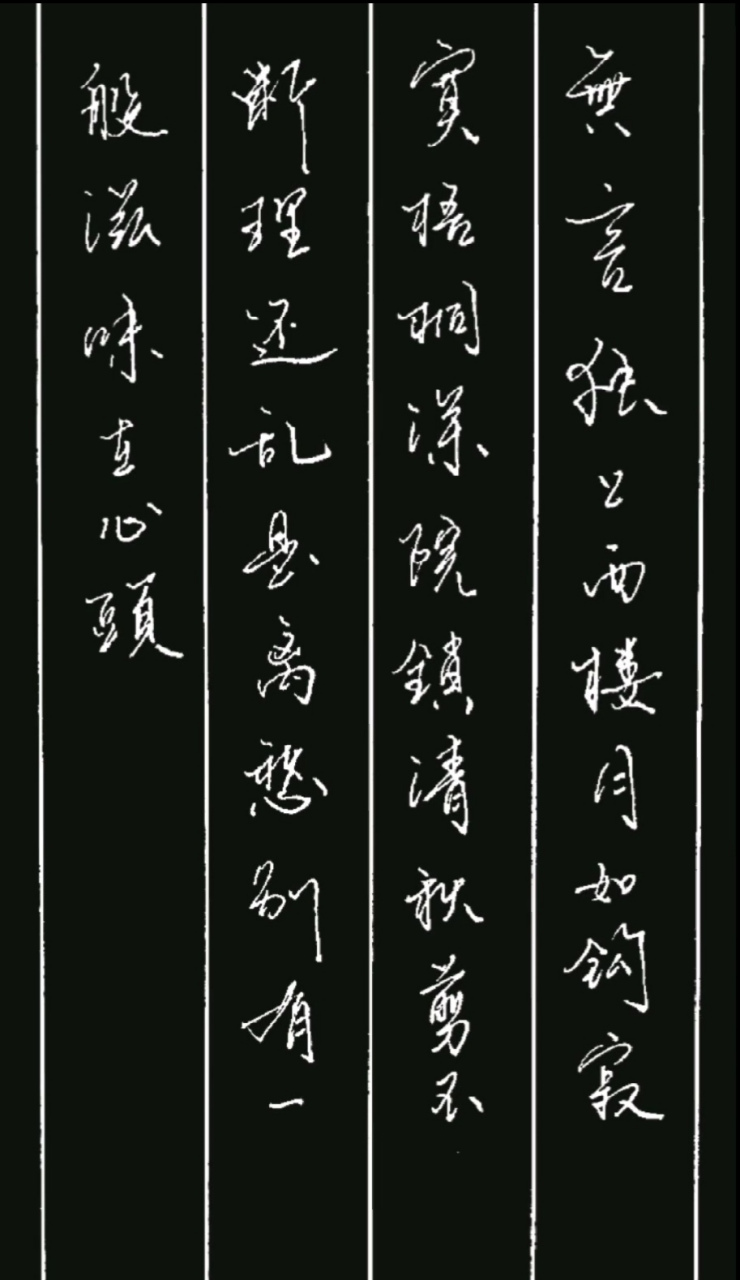 無言独上西楼月如鈎寂
寞梧桐深院鎖清秋剪不
断理还乱是离愁别有一
般滋味在心頭